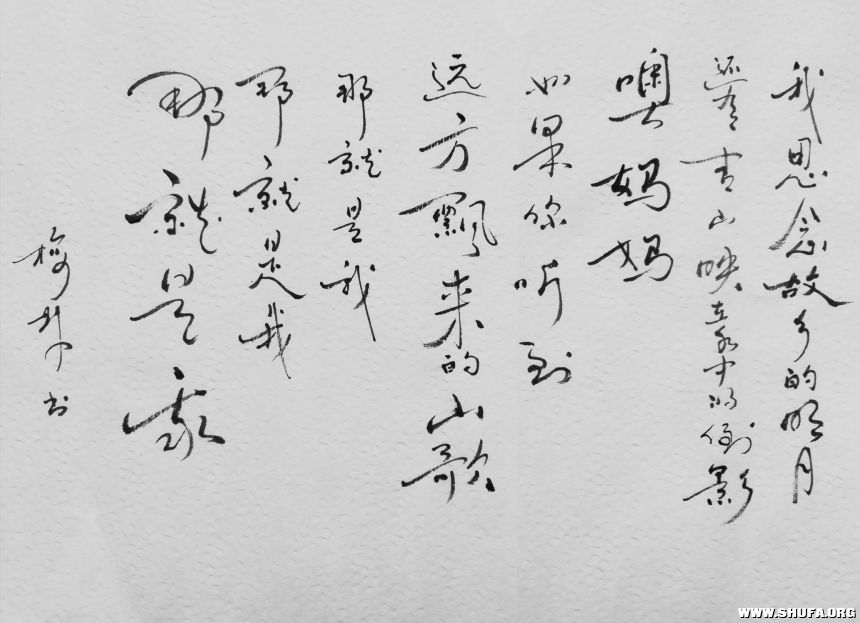 我思念故乡的明月
还有青山映在水中的倒影
噢妈妈
如果你听到
远方飘来的山歌
那就是我
那就是我
那就是我
书
WWW.SHUFA.ORG